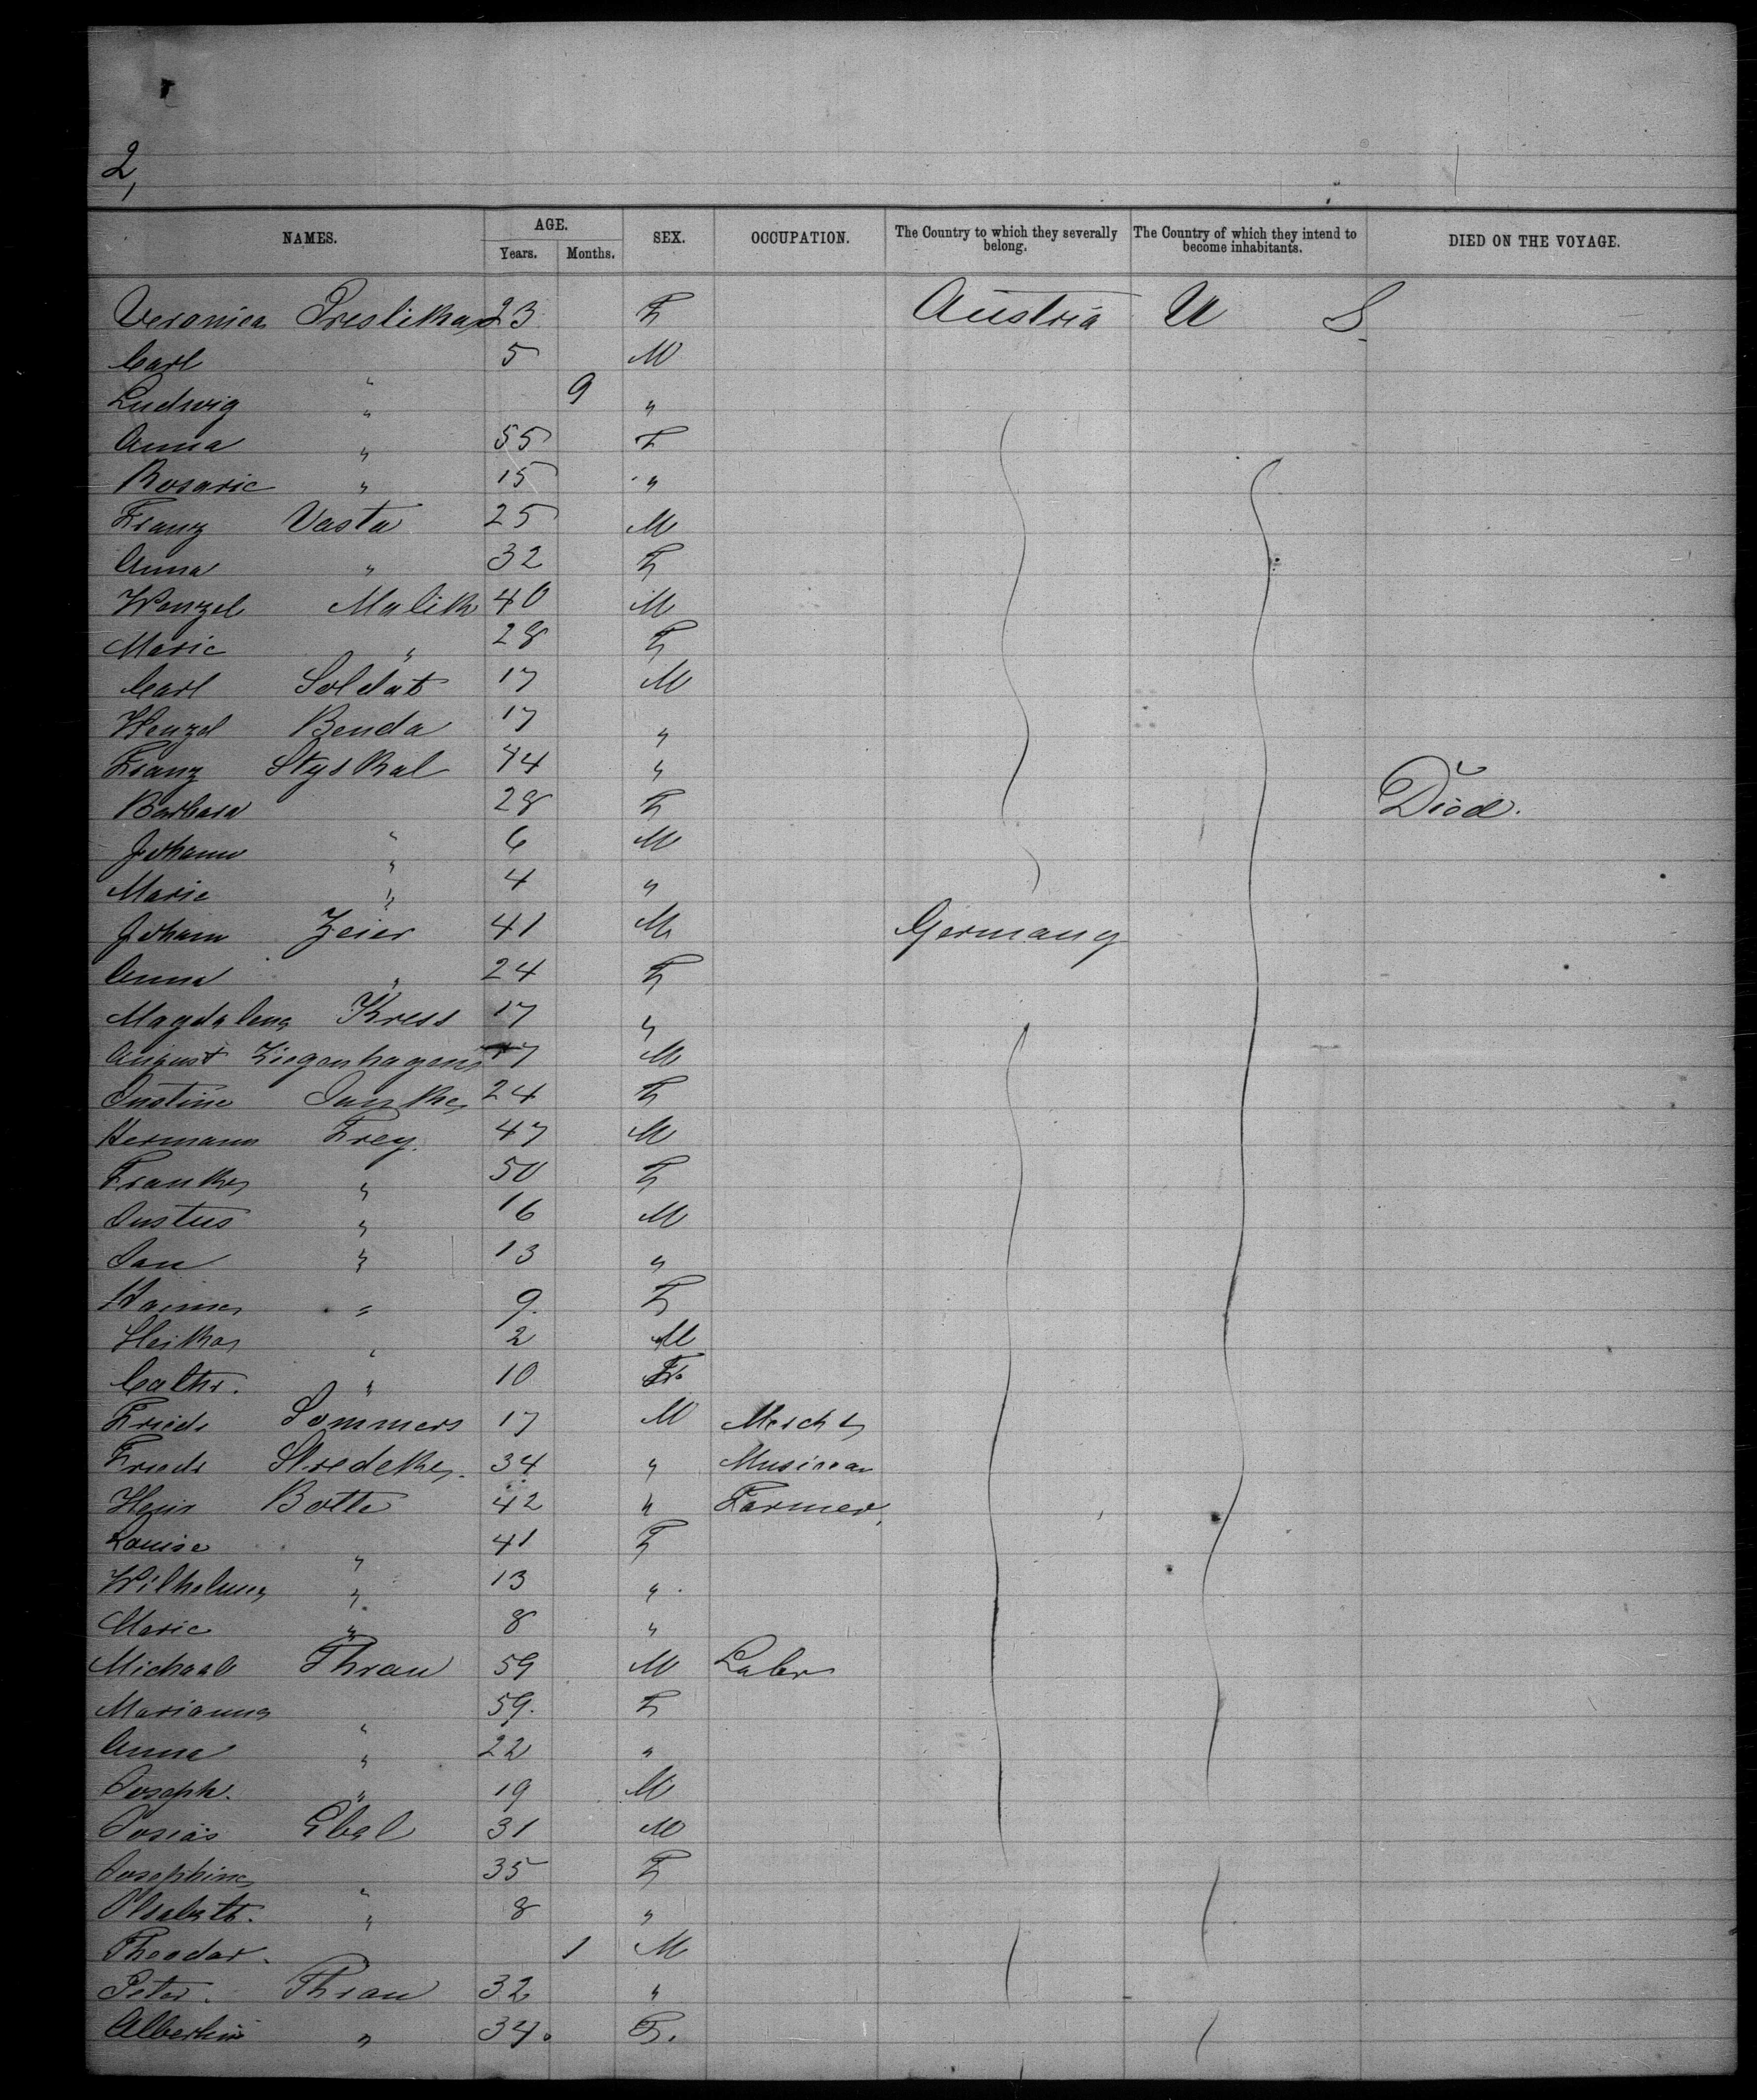 2,
NAMES. AGE. SEX. OCCUPATION. The Country to which they severally belong. The Country of which they intend to become inhabitants. DIED ON THE VOYAGE.
Years. Months.
Veronica Preslika 23 F Austria U S
Carl " 5 M
Ludwig " 9 "
Anna " 55 F
Rosarie " 15 "
Franz Vasta 25 M
Anna " 32 F
Wenzel Malik 40 M
Marie " 28 F
Carl Soldat 17 M
Wenzel Benda 17 "
Franz Styskal 44 "
Barbara 28 F Died.
Johann " 6 M
Marie " 4 "
Johann Zeier 41 M Germany
Anna " 24 F
Magdalena Kress 17 "
August Ziegenhagen 17 M
Justine 24 F
Hermann Frey. 47 M
" 50 F
Justus " 16 M
Jan " 13 "
" 9. F
" 2 M
Cathr. " 10 F
Friedr Sommers 17 M Mercht
Friedr 34 " Musician
Heinr Botte 42 " Farmer
Louise " 41 F
Wilhelmine " 13 "
Marie " 8 "
Michael Thrau 59 M Labr
Marianna " 59. F
Anna " 22 "
Joseph. " 19 M
Josias Ebel 31 M
Josephine " 35 F
" 8 "
Theodor. 1 M
Peter. Thrau 32 "
Albertine " 34. F.